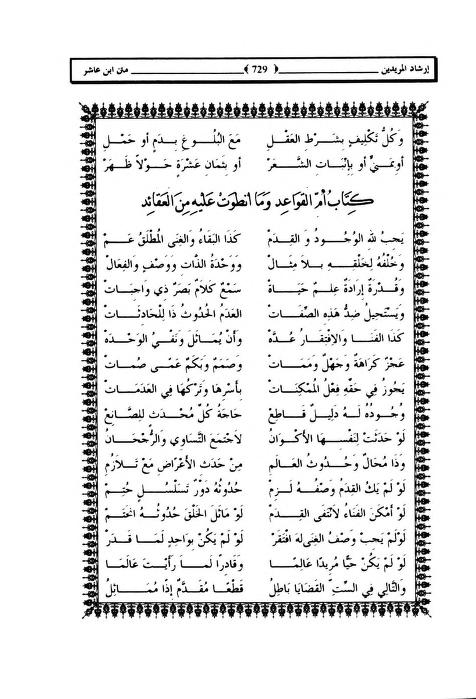 إرشاد المريدين ﴿ 729 ﴾ متن ابن عاشر
وَكُلُّ تَكْلِيفٍ بِشَرْطِ الْعَقْلِ مَعَ الْبُلُوغِ بِدَمٍ أَو حَمْلِ
أَو بِمَنِيٍّ أَو بِإِنْبَاتِ الشَّعَرْ أَو بِثَمَانِ عَشْرَةٍ حَوْلًا ظَهَرْ
كِتَابُ أُمِّ القَوَاعِدِ وَمَا انطَوَتْ عَلَيْهِ مِنَ العَقَائِدِ
يَجِبُ للهِ الوُجُودُ وَ القِدَمْ كَذَا البَقَاءُ وَالغِنَى المُطْلَقُ عَمْ
وَخُلْفُهُ لِخَلْقِهِ بِلاَ مِثَالْ وَوَحْدَةُ الذَّاتِ وَوَصْفٍ وَالفِعَالْ
وَقُدْرَةٌ إِرَادَةٌ عِلْمٌ حَيَاةْ سَمْعٌ كَلاَمٌ بَصَرٌ ذِي وَاجِبَاتْ
وَيَسْتَحِيلُ ضِدُّ هَذِهِ الصِّفَاتْ العَدَمُ الحُدُوثُ ذَا لِلْحَادِثَاتْ
كَذَا الفَنَا وَالاِفْتِقَارُ عُدَّهْ وَأَنْ يُمَاثَلَ وَنَفْيُ الوَحْدَهْ
عَجْزٌ كَرَاهَةٌ وَجَهْلٌ وَمَمَاتْ وَصَمَمٌ وَبَكَمٌ عَمًى صُمَاتْ
يَجُوزُ فِي حَقِّهِ فِعْلُ المُمْكِنَاتْ بِأَسْرِهَا وَتَرْكُهَا فِي العَدَمَاتْ
وُجُودُهُ لَهُ دَلِيلٌ قَاطِعْ حَاجَةُ كُلِّ مُحْدَثٍ لِلصَّانِعْ
لَوْ حَدَثَتْ لِنَفْسِهَا الأَكْوَانُ لاَجْتَمَعَ التَّسَاوِي وَالرُّجْحَانُ
وَذَا مُحَالٌ وَحُدُوثُ العَالَمِ مِنْ حَدَثِ الأَعْرَاضِ مَعْ تَلاَزُمِ
لَوْ لَمْ يَكُ القِدَمُ وَصْفَهُ لَزِمْ حُدُوثُهُ دَوْرٌ تَسَلْسُلٌ حُتِمْ
لَوْ أَمْكَنَ الفَنَاءُ لاَنْتَفَى القِدَمْ لَوْ مَاثَلَ الخَلْقَ حُدُوثُهُ انْحَتَمْ
لَوْ لَمْ يَجِبْ وَصْفُ الغِنَى لَهُ افْتَقَرْ لَوْ لَمْ يَكُنْ بِوَاحِدٍ لَمَا قَدَرْ
لَوْ لَمْ يَكُنْ حَيًّا مُرِيدًا عَالِمًا وَقَادِرًا لَمَا رَأَيْتَ عَالَمَا
وَالتَّالِي فِي السِّتِّ القَضَايَا بَاطِلُ قَطْعًا مُقَدَّمٌ إِذًا مُمَاثِلُ